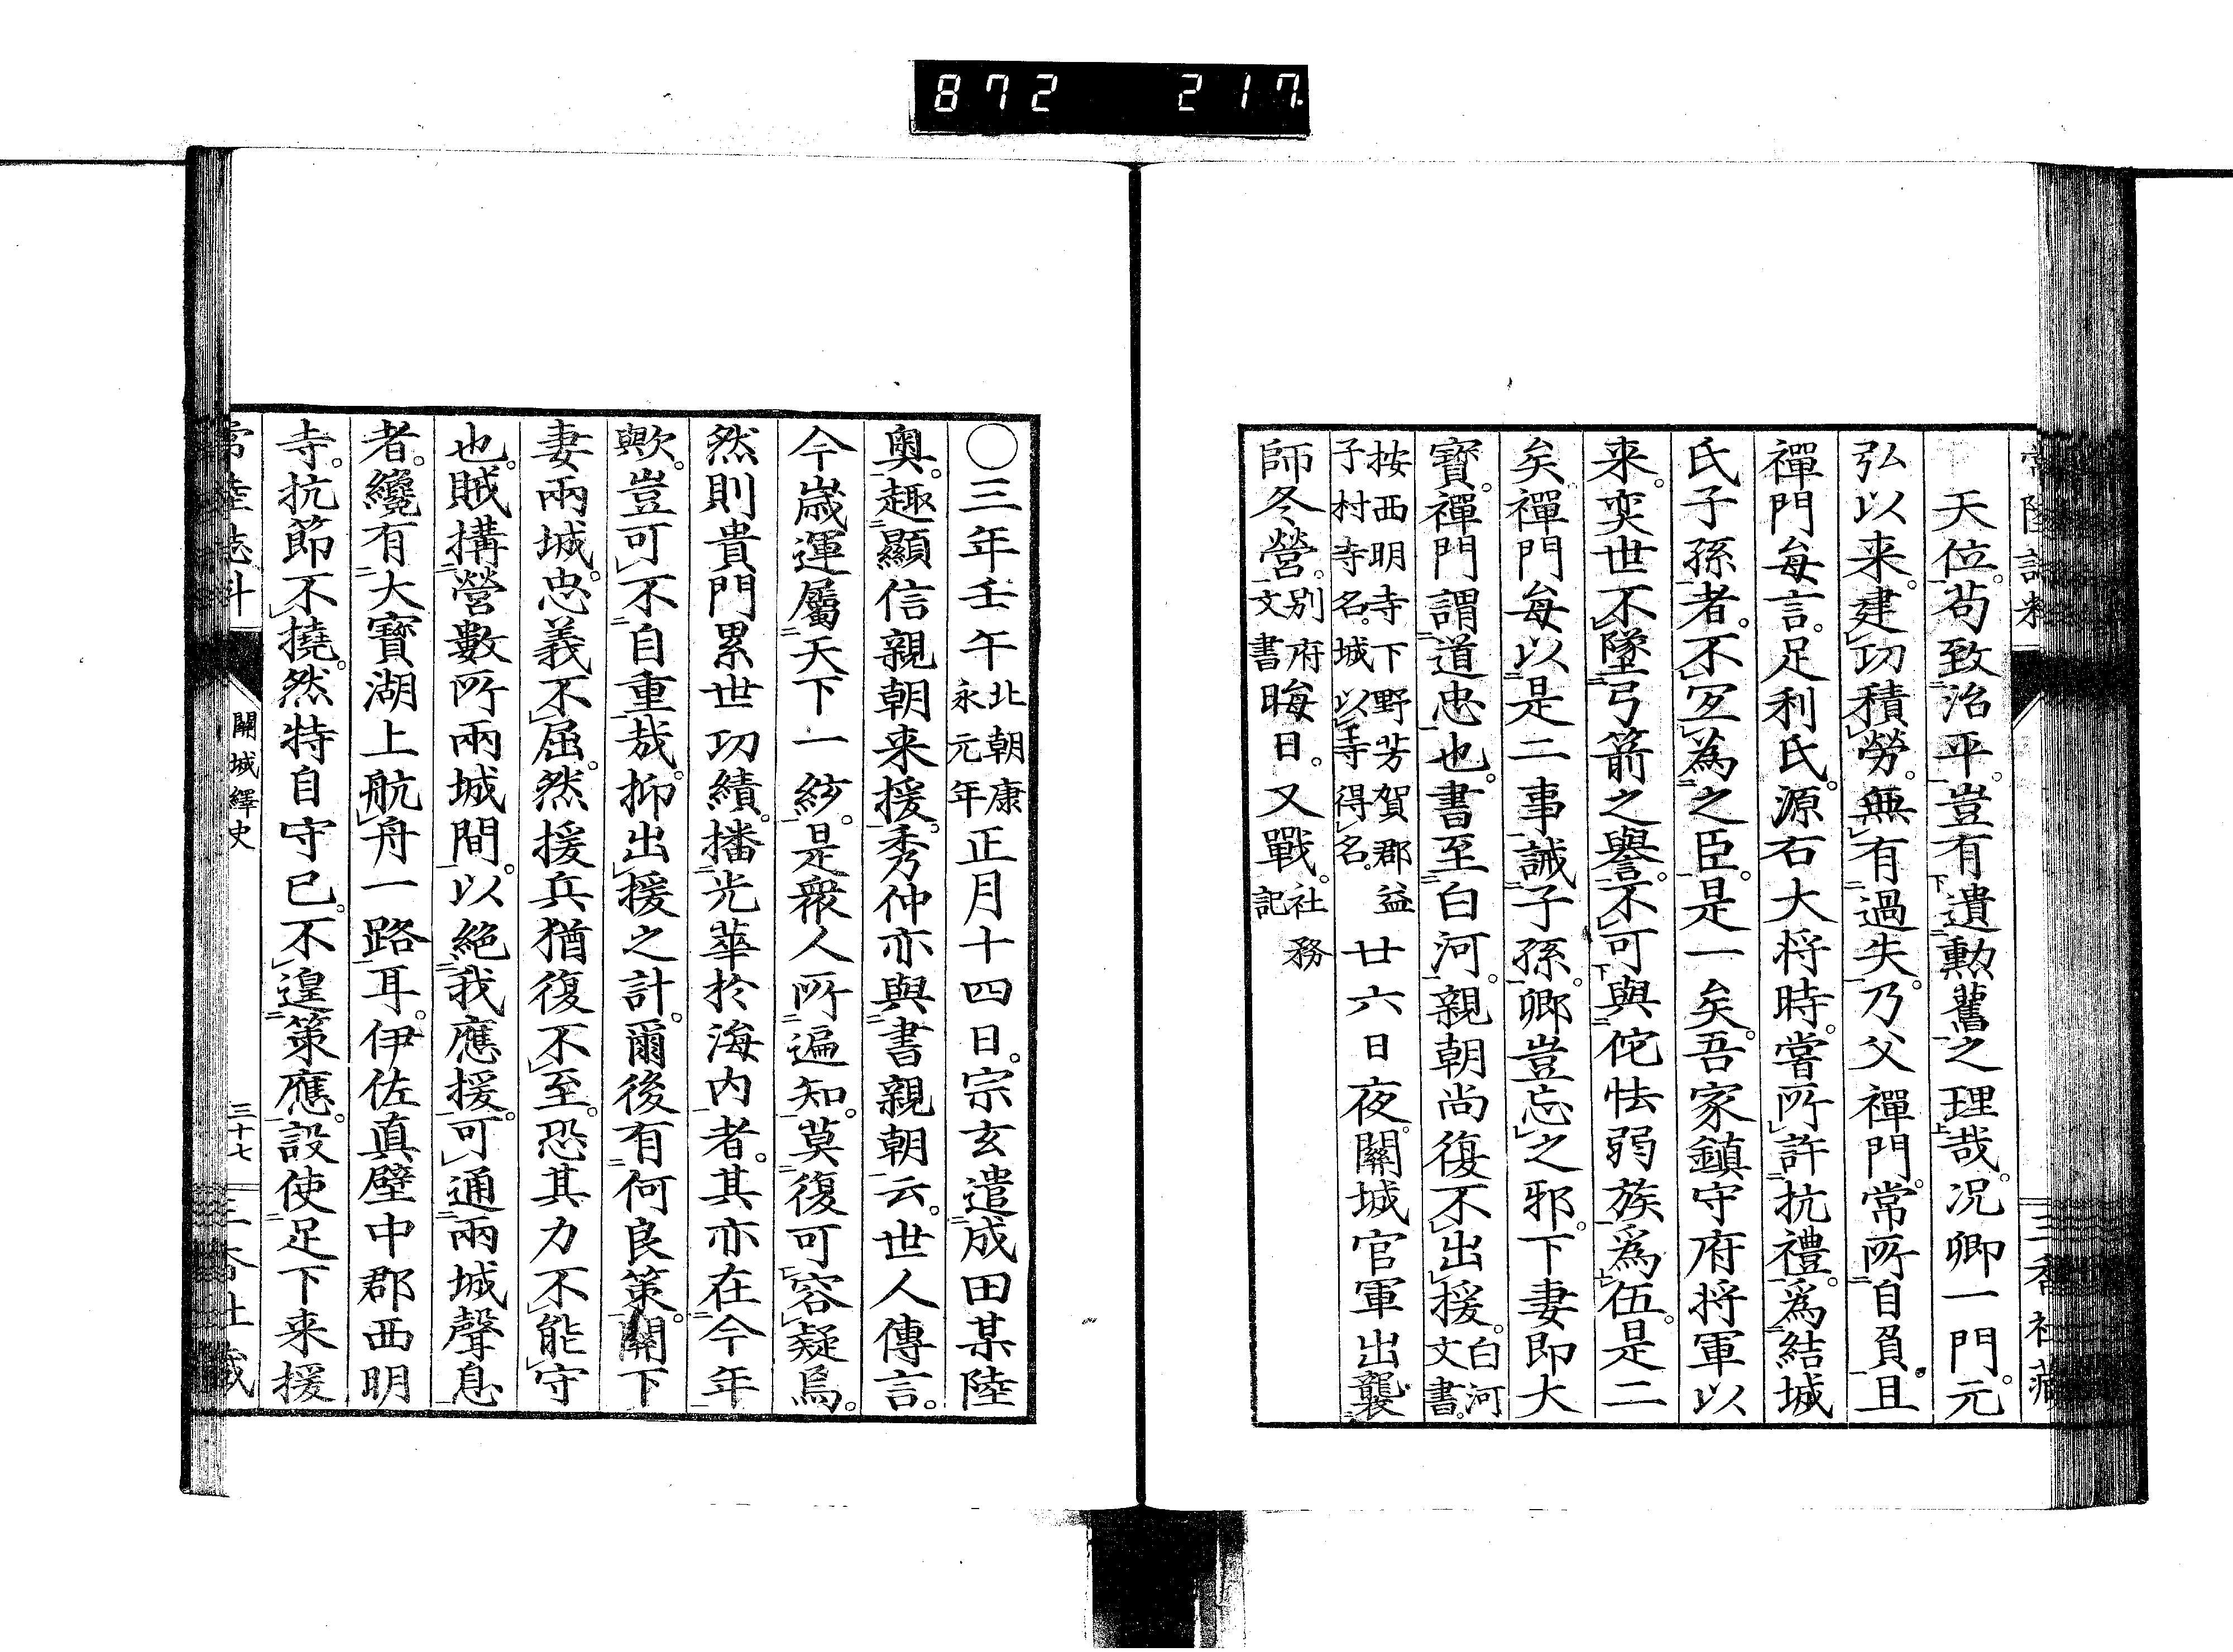 872 217
天位。苟致治平。豈有遺勲舊之理哉。況卿一門。元
弘以来。建功積勞。無有過失。乃父禪門。常所自負。且
禪門每言。足利氏。源右大将時。嘗所許抗禮。爲結城
氏子孫者。不冝為之臣。是一矣。吾家鎮守府将軍以
来。奕世不墜弓箭之譽。不可與佗怯弱族爲伍。是二
矣禪門每以是二事誡子孫。卿豈忘之邪。下妻即大
寳。禪門謂道忠也。書至白河。親朝尚復不出援。白河文書。
按西明寺下野芳賀郡益子村寺名。城以寺得名。廿六日夜。關城官軍出襲
師冬營。別府文書晦日。又戰。社務記
〇三年壬午北朝康永元年正月十四日。宗玄遣成田某陸
奥。趣顯信親朝来援。秀仲亦與書親朝云。世人傳言。
今嵗運屬天下一統。是衆人所遍知。莫復可容疑焉。
然則貴門累世功績。播光華於海内者。其亦在今年
歟。豈可不自重哉。抑出援之計。爾後有何良策。關下
妻兩城。忠義不屈。然援兵猶復不至。恐其力不能守
也。賊搆營數所兩城間。以絶我應援。可通兩城聲息
者。纔有大寳湖上航舟一路耳。伊佐真壁中郡西明
寺。抗節不撓。然特自守已。不遑策應。設使足下来援
關城繹史
三十七